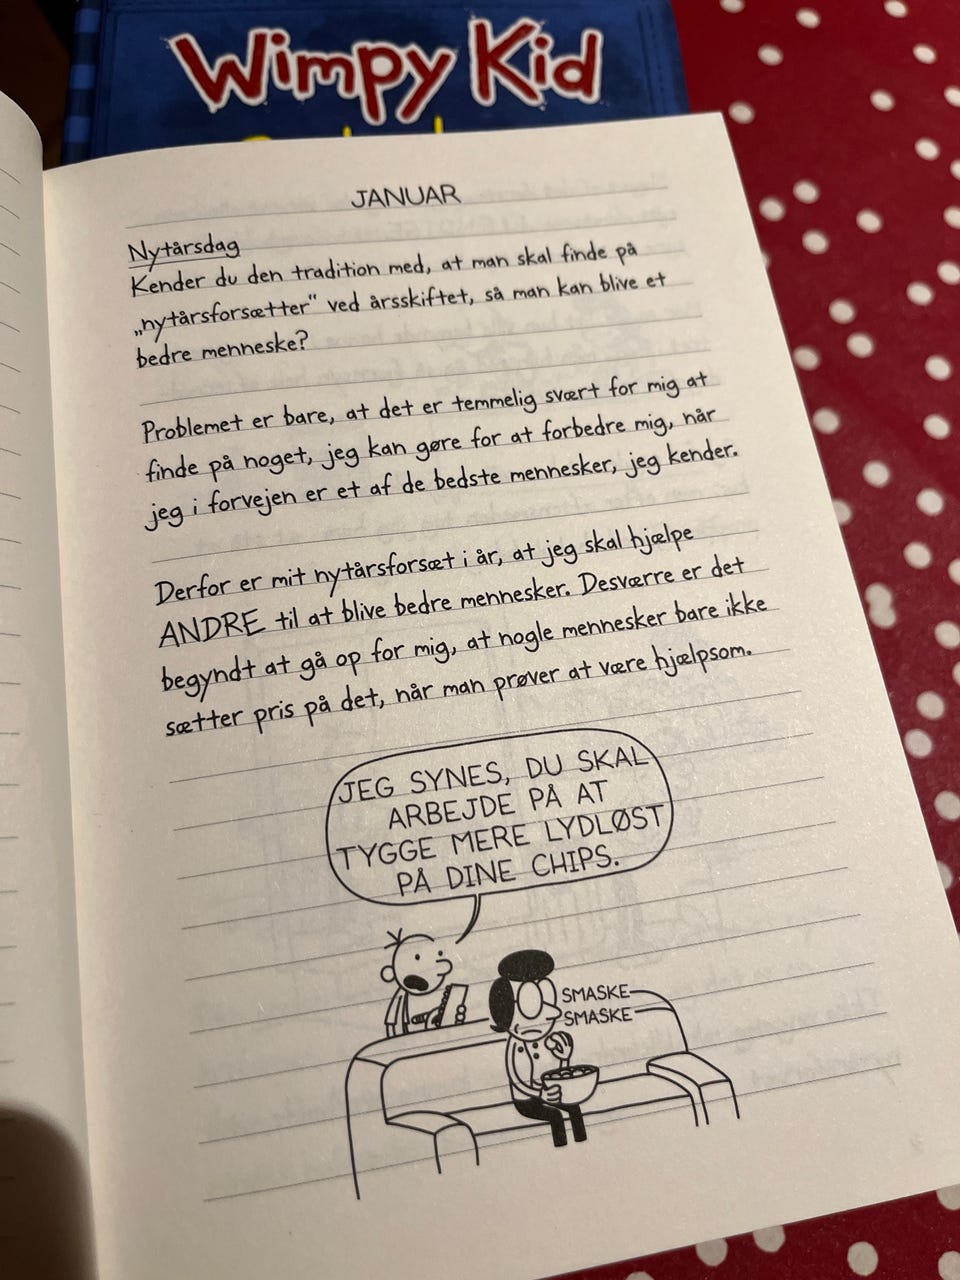 Wimpy Kid
JANUAR
Nytårsdag
Kender du den tradition med, at man skal finde på
„nytårsforsætter" ved årsskiftet, så man kan blive et
bedre menneske?
Problemet er bare, at det er temmelig svært for mig at
finde på noget, jeg kan gøre for at forbedre mig, når
jeg i forvejen er et af de bedste mennesker, jeg kender.
Derfor er mit nytårsforsæt i år, at jeg skal hjælpe
ANDRE til at blive bedre mennesker. Desværre er det
begyndt at gå op for mig, at nogle mennesker bare ikke
sætter pris på det, når man prøver at være hjælpsom.
JEG SYNES, DU SKAL
ARBEJDE PÅ AT
TYGGE MERE LYDLØST
PÅ DINE CHIPS.
SMASKE
SMASKE